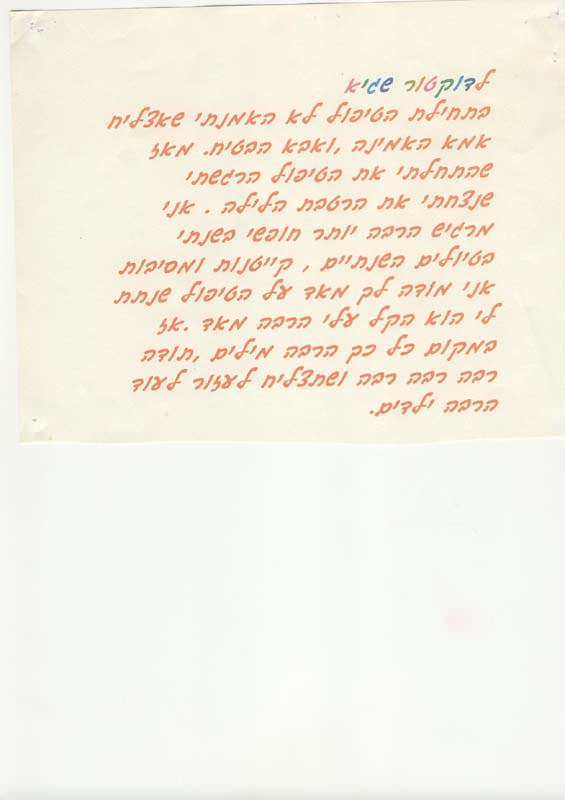 לדוקטור שגיא
בתחילת הטיפול לא האמנתי שאצליח
אמא האמינה ,ואבא הבטיח. מאז
שהתחלתי את הטיפול הרגשתי
שנצחתי את הרטבת הלילה . אני
מרגיש הרבה יותר חופשי בשנתי
בטיולים השנתיים , קייטנות ומסיבות
אני מודה לך מאד על הטיפול שנתת
לי הוא הקל עלי הרבה מאד .אז
במקום כל כך הרבה מילים ,תודה
רבה רבה רבה ושתצליח לעזור לעוד
הרבה ילדים.